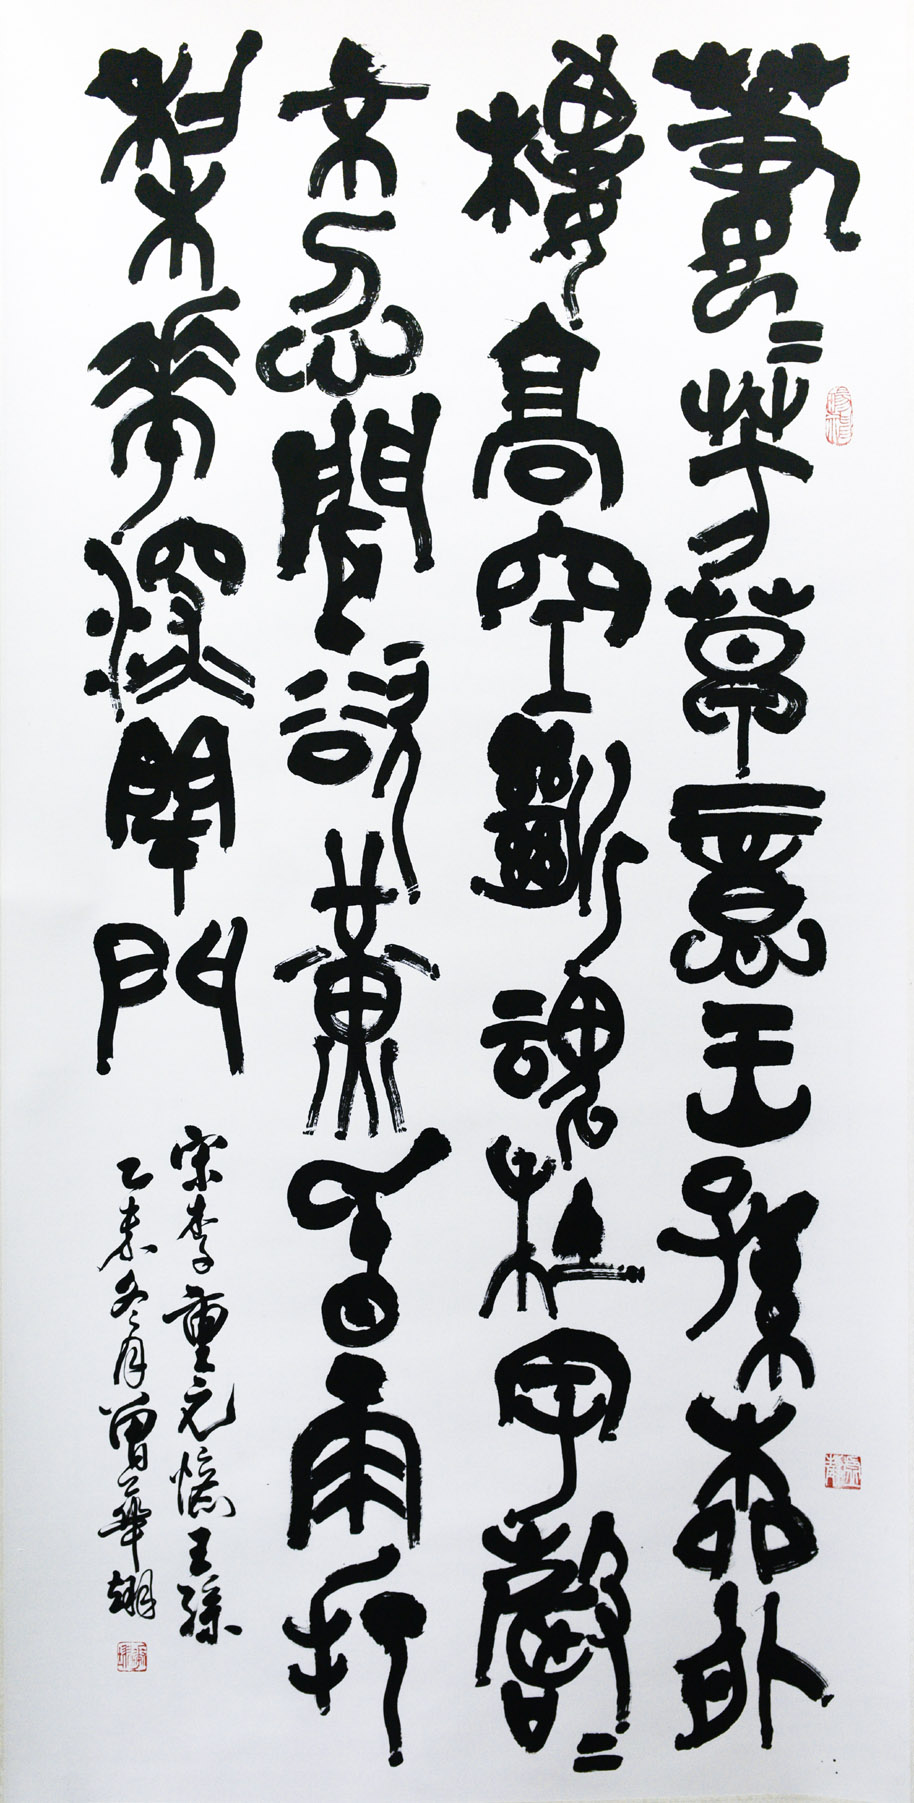 萋〻芳草憶王孫柳外
樓高空斷魂杜宇聲〻
不忍聞欲黃昏雨打
梨花深閉門
宋李重元憶王孫
乙未冬月曾華翊